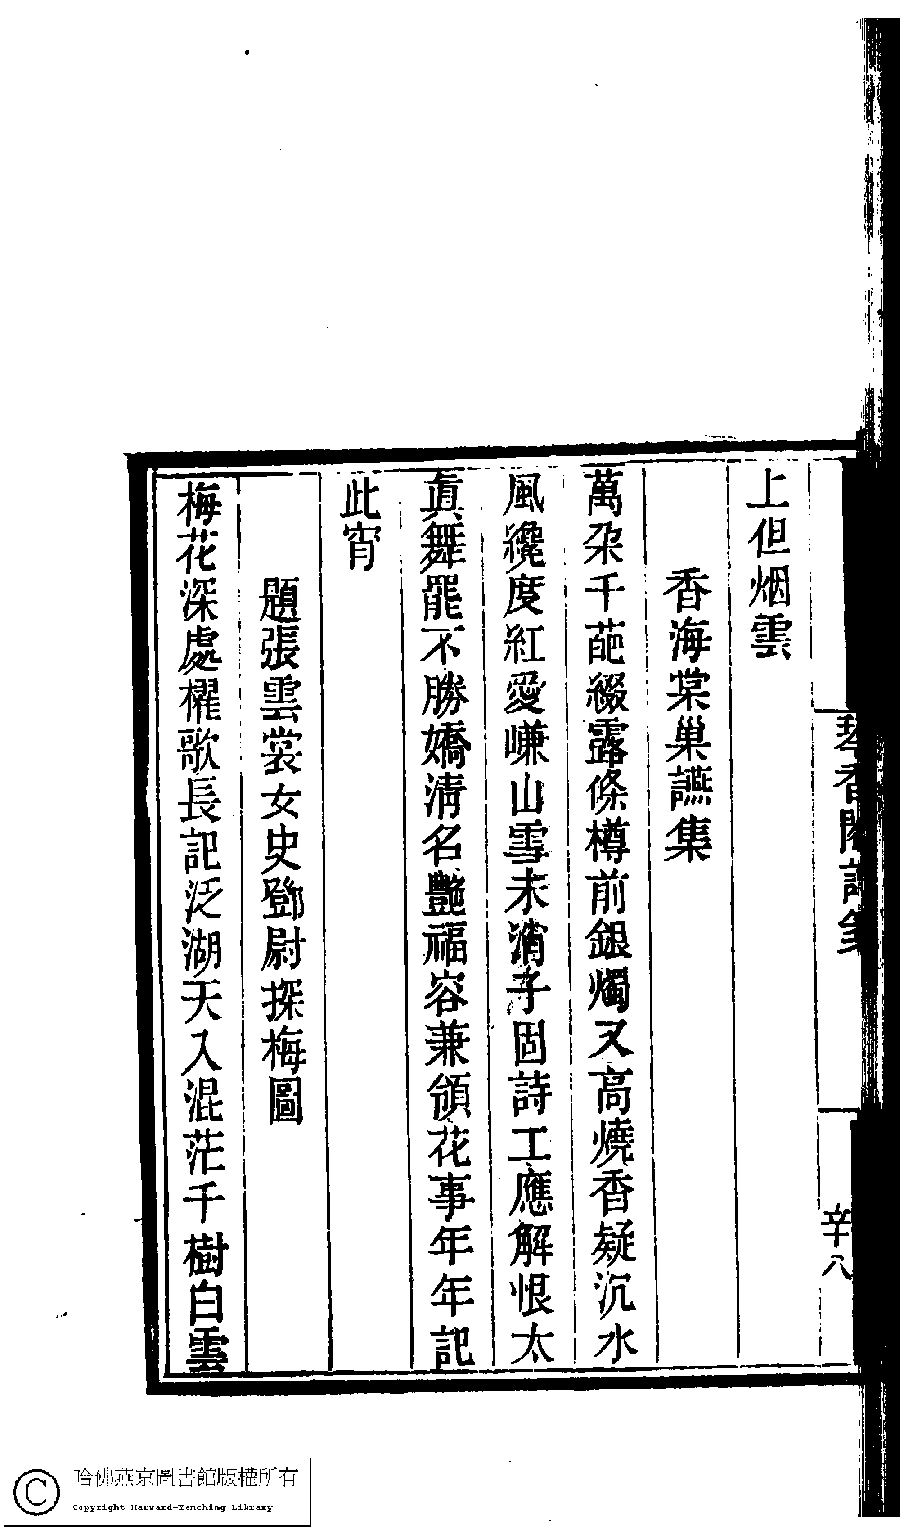 上但烟雲
香海棠巢讌集
萬朶千葩綴露條樽前銀燭又高燒香疑沉水
風纔度紅愛嵰山雪未消子固詩工應解恨太
眞舞罷不勝嬌淸名艷福容兼領花事年年記
此宵
題張雲裳女史鄧尉探梅圖
梅花深處櫂歌長記泛湖天入混茫千樹白雲
香閣詩
辛八
哈佛燕京圖書館版權所有
Copyright Harvard-Yenching Library